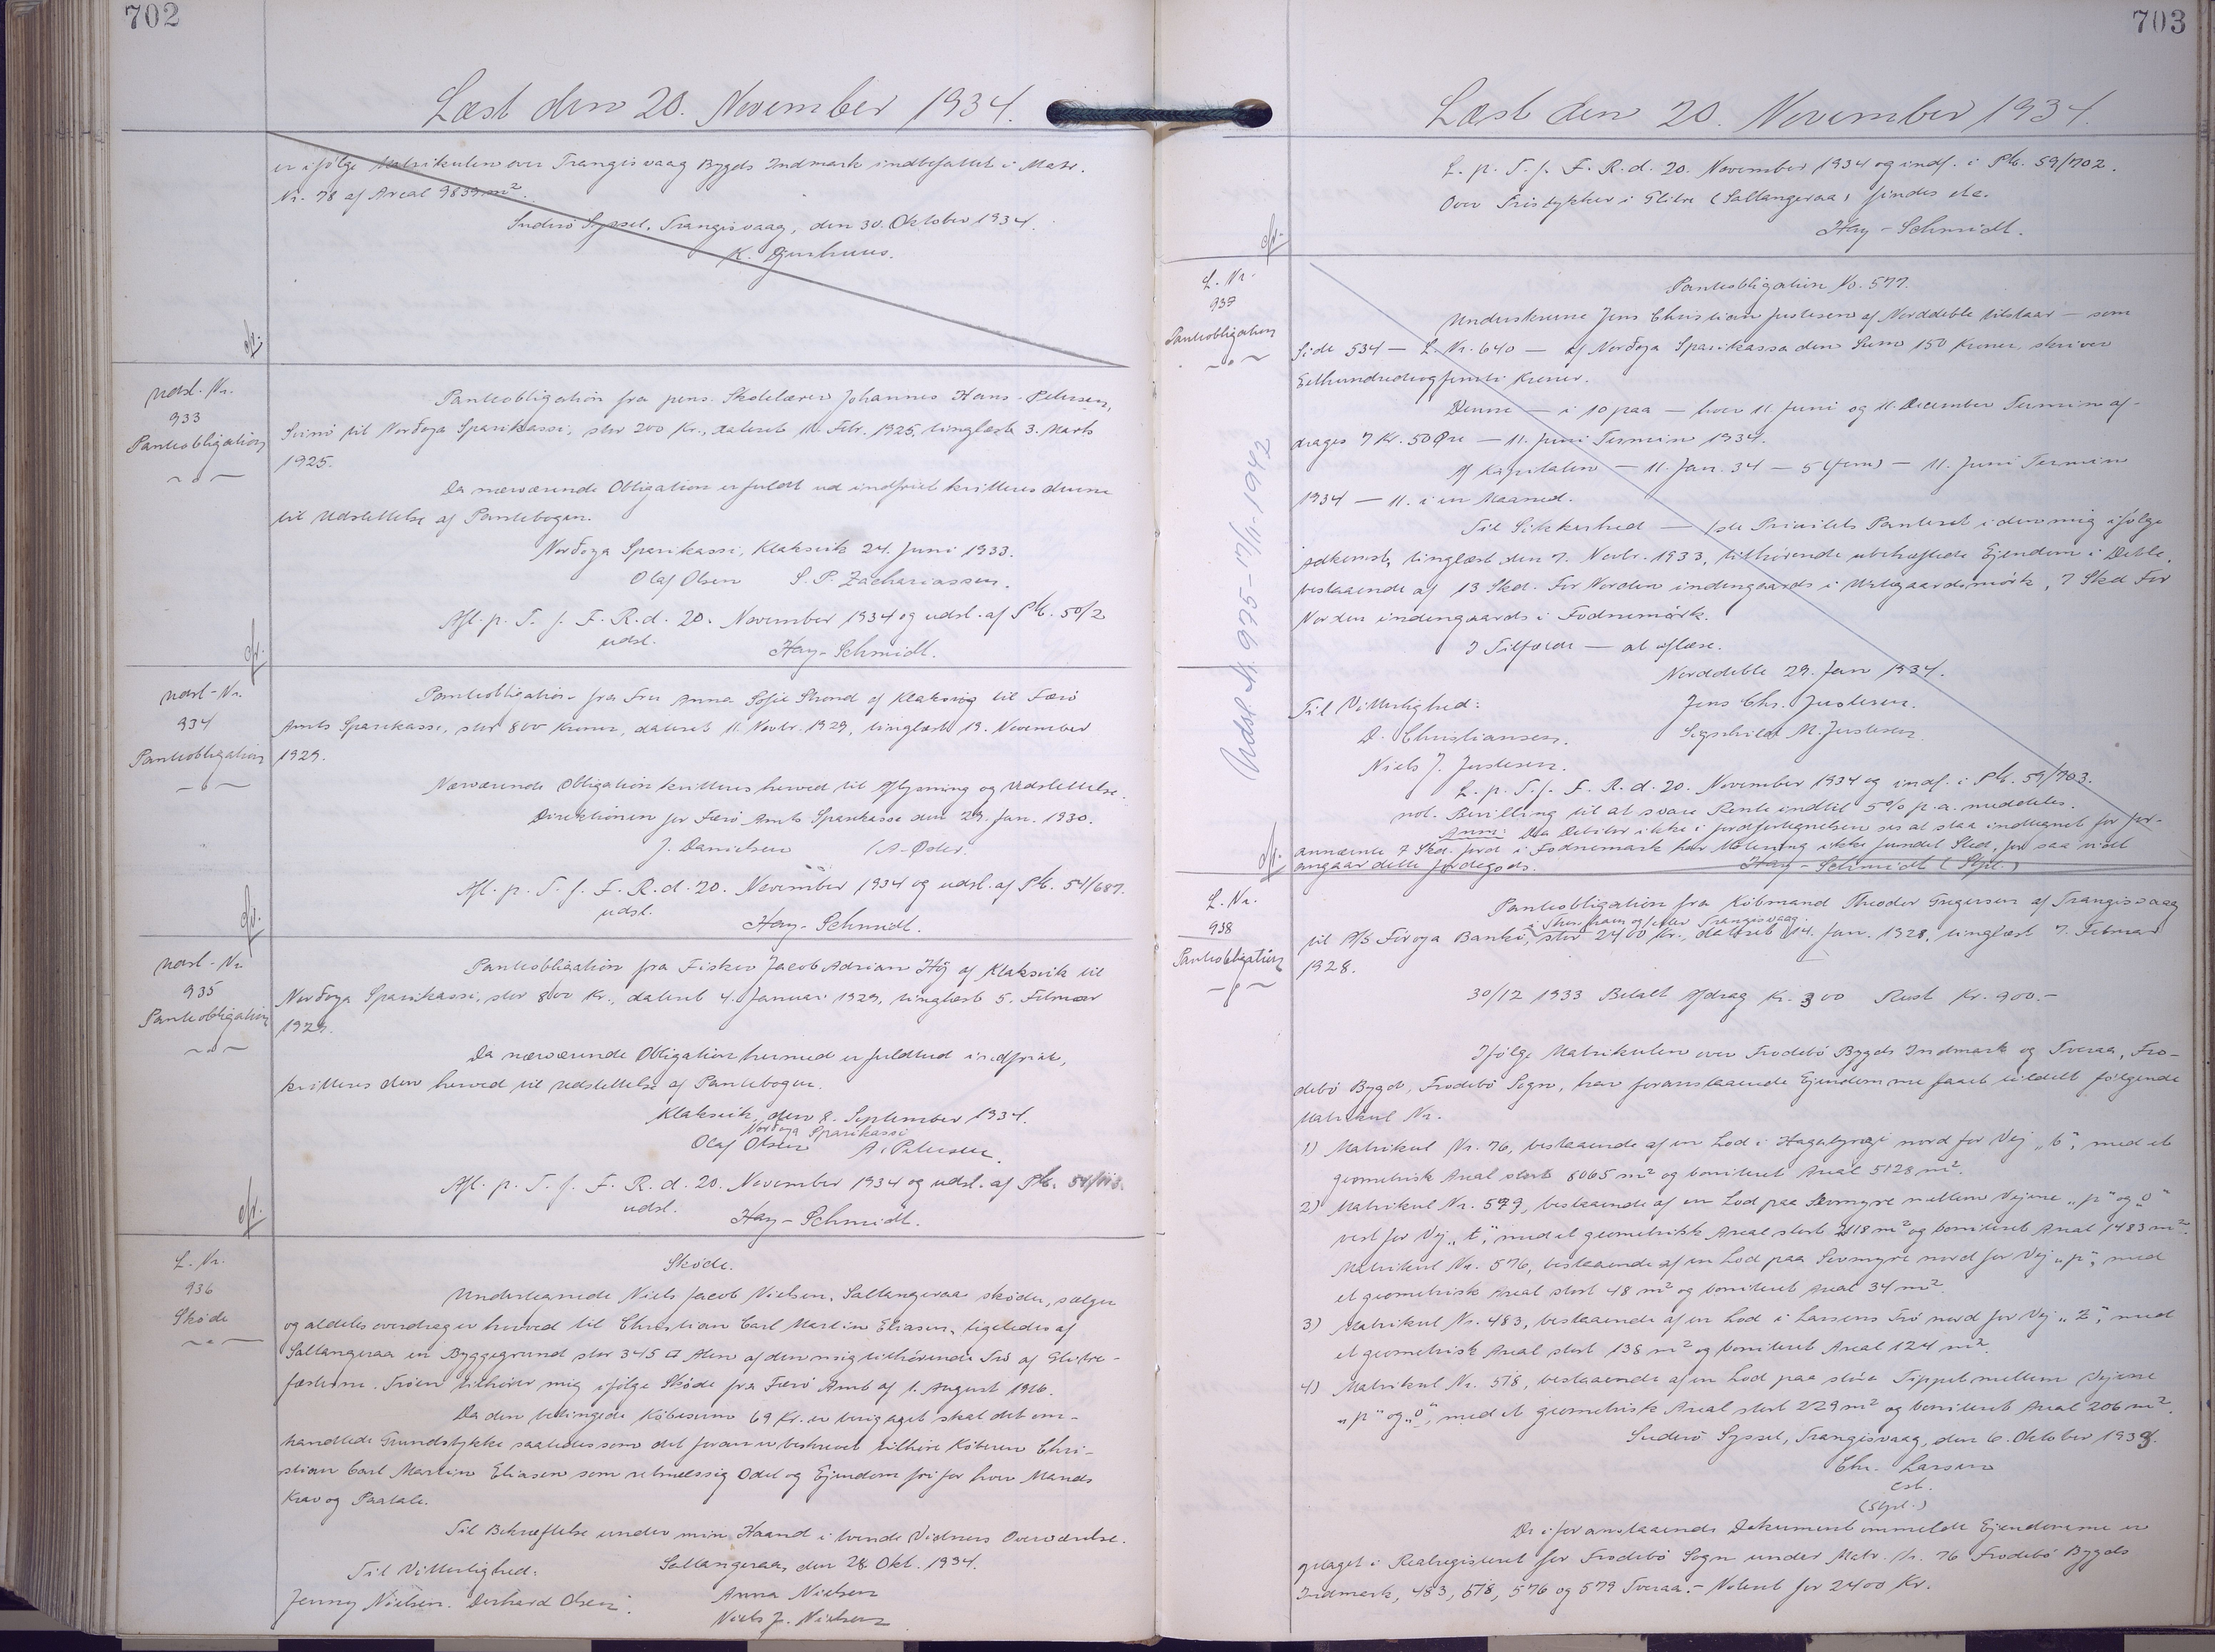 702
Læst den 20. November 1934.
er ifølge Matrikulen over Trangisvaag Bygds Indmark indbefattet i Matr.
Nr. 78 af Areal 9839 m².
Suderø Syssel, Trangisvaag, den 30. Oktober 1934.
K. Djurhuus.
Udsl. Nr.
933
Pantobligation
Pantobligation fra pens. Skolelærer Johannes Hans-Petersen,
til Norðoya Sparikassi, stor 200 Kr., dateret Febr. 1925, tinglæst 3. Marts
1925.
Da nærværende Obligation er fuldt ud indfriet kvitteres denne
til Udslettelse af Pantebogen.
Norðoya Sparikassi, Klaksvik 24. Juni 1933.
Olaf Olsen S. P. Zachariassen.
Afl. p. T. f. F. R. d. 20. November 1934 og udsl. af Pb. 50/2
udsl.
Hay-Schmidt.
Udsl-Nr.
934
Pantobligation
Pantobligation fra Fru Anna Sofie Strond af Klaksvig til Færø
Amts Sparikasse, stor 800 Kroner, dateret 11. Novbr. 1929, tinglæst 19. November
1929.
Nærværende Obligation kvitteres herved til Aflysning og Udslettelse.
Direktionen for Færø Amts Sparikasse den 29. Jan. 1930.
J. Danielsen
Afl. p. T. f. F. R. d. 20. November 1934 og udsl. af Pb. 54/687.
udsl.
Hay-Schmidt.
Udsl-Nr
935
Pantobligation
Pantobligation fra Fisker Jacob Adrian Høj af Klaksvik til
Norðoya Sparikassi, stor 800 Kr., dateret 4. Januar 1929, tinglæst 5. Februar
1929.
Da nærværende Obligation hermed er fuldtud indfriet,
kvitteres den herved til Udslettelse af Pantebogen.
Klaksvik, den 8. September 1934.
Norðoya Sparikassi
Olaf Olsen A. Petersen.
Afl. p. T. f. F. R. d. 20. November 1934 og udsl. af Pb.
udsl.
Hay-Schmidt.
L. Nr.
936
Skøde
Skøde.
Undertegnede Niels Jacob Nielsen, Saltangeraa skøder, sælger
og aldeles overdrager herved til Christian Carl Martin Eliasen, ligeledes af
Saltangeraa en Byggegrund stor 345 □ Alen af den mig tilhørende Trø af Glitre-
fæsterne. Trøen tilhører mig ifølge Skøde fra Færø Amt af 1. August 1916.
Da den betingede Købesum 69 Kr. er berigtiget skal det om-
handlede Grundstykke saaledes som det foran er beskrevet tilhøre Køberen Chri-
stian Carl Martin Eliasen som retmæssig Odel og Ejendom fri for hver Mands
Krav og Paatale.
Til Bekræftelse under min Haand i tvende Vidners Overværelse.
Saltangeraa, den 28. Okt. 1934.
Til Vitterlighed:
Anna Nielsen
Jenny Nielsen. Olsen.
Niels J. Nielsen
703
Læst den 20. November 1934.
L. p. T. f. F. R. d. 20. November 1934 og indf. i Pb. 59/702.
Over Trøstykker i Glitre (Saltangeraa) findes ste.
Hay-Schmidt.
L. Nr.
937
Pantobligation
Udsl. Nr. 975-17/11-1942
Pantobligation No. 577.
Underskrevne Jens Christian Justesen af Norddeble tilstaar — som
Side 534 — L. Nr. 640 — af Norðoya Sparikassa den Sum 150 Kroner, skriver
Eethundredeogfemti Kroner.
Denne — i 10 paa — hver 11. Juni og 11. December Termin af-
drages 7 Kr. 50 Øre — 11. Juni Termin 1934.
Af Kapitalen — 11. Jan. 34 — 5 (fem) — 11. Juni Termin
1934 — 11. i en Maaned.
Til Sikkerhed — 1ste Prioritets Panteret i den mig ifølge
Adkomst, tinglæst den 7. Novbr. 1933, tilhørende ubehæftede Ejendom i Deble,
bestaaende af 13 Skd. For Norden indengaards i Urtegaardsmørk, 7 Skd For
Norden indengaards i Fodnemørk.
I Tilfælde — at aflæse.
Norddeble 29. Jan 1934.
Til Vitterlighed:
Jens Chr. Justesen.
D. Christiansen.
Sigshild M. Justesen
Niels J. Justesen.
L. p. T. f. F. R. d. 20. November 1934 og indf. i Pb. 59/703.
not. Bevilling til at svare Rente indtil 5% p. a. meddeles.
Anm: Da Debitor ikke i Jordfortegnelsen ses at staa indtegnet for for-
annævnte 7 Skd. Jord i Fodnemark har Notering ikke fundet Sted, for saa vidt
angaar dette Jordegods.
Hay-Schmidt (Stpl.)
L. Nr.
938
Pantobligation
Pantobligation fra Købmand Theodor Gregersen af Trangisvaag
i Thorshavn og/eller Trangisvaag.
til A/S Føroya Banki, stor 2400 Kr., dateret 14. Jan. 1928, tinglæst 7. Februar
1928.
30/12 1933 Betalt Afdrag Kr. 300 Rest Kr. 900.-
Ifølge Matrikulen over Frodebø Bygds Indmark og Tveraa, Fro-
debø Bygd, Frodebø Sogn, har foranstaaende Ejendomme faaet tildelt følgende
Matrikul Nr.
1) Matrikul Nr. 76, bestaaende af en Lod i Hagabyrgi nord for Vej „b", med et
geometrisk Areal stort 8065 m² og boniteret Areal 5128 m².
2) Matrikul Nr. 579, bestaaende af en Lod paa Sevmyre mellem Vejene „p" og „o"
vest for Vej „t", med et geometrisk Areal stort 2118 m² og boniteret Areal 1483 m².
Matrikul Nr. 576, bestaaende af en Lod paa Sevmyre nord for Vej „p", med
et geometrisk Areal stort 48 m² og boniteret Areal 34 m².
3) Matrikul Nr. 483, bestaaende af en Lod i Larsens Trø nord for Vej „Z", med
et geometrisk Areal stort 138 m² og boniteret Areal 124 m².
4) Matrikul Nr. 578, bestaaende af en Lod paa Tippet mellem Vejene
„p" og „o", med et geometrisk Areal stort 229 m² og boniteret Areal 206 m².
Suderø Syssel, Trangisvaag, den 6. Oktober 1933.
Chr. Larsen
cst.
(Stpl.)
De i foranstaaende Dokument ommeldte Ejendomme er
optaget i Realregisteret for Frodebø Sogn under Matr. Nr. 76 Frodebø Bygds
Indmark, 483, 578, 576 og 579 Tveraa.- Noteret for 2400 Kr.